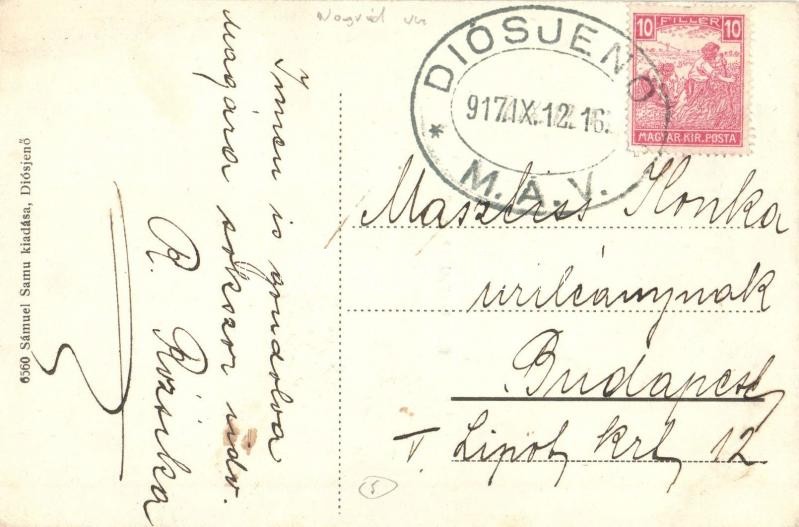 Nográd vm
Innen is gondolva
magára sokszor üdv.
R. Rózsika
6560 Sámuel Samu kiadása, Diósjenő
DIÓSJENŐ
917.IX.12.16.
* M.Á.V.
10 FILLÉR 10
MAGYAR KIR. POSTA
Ilonka
urileánynak
Budapest
V Lipot krt 12
5